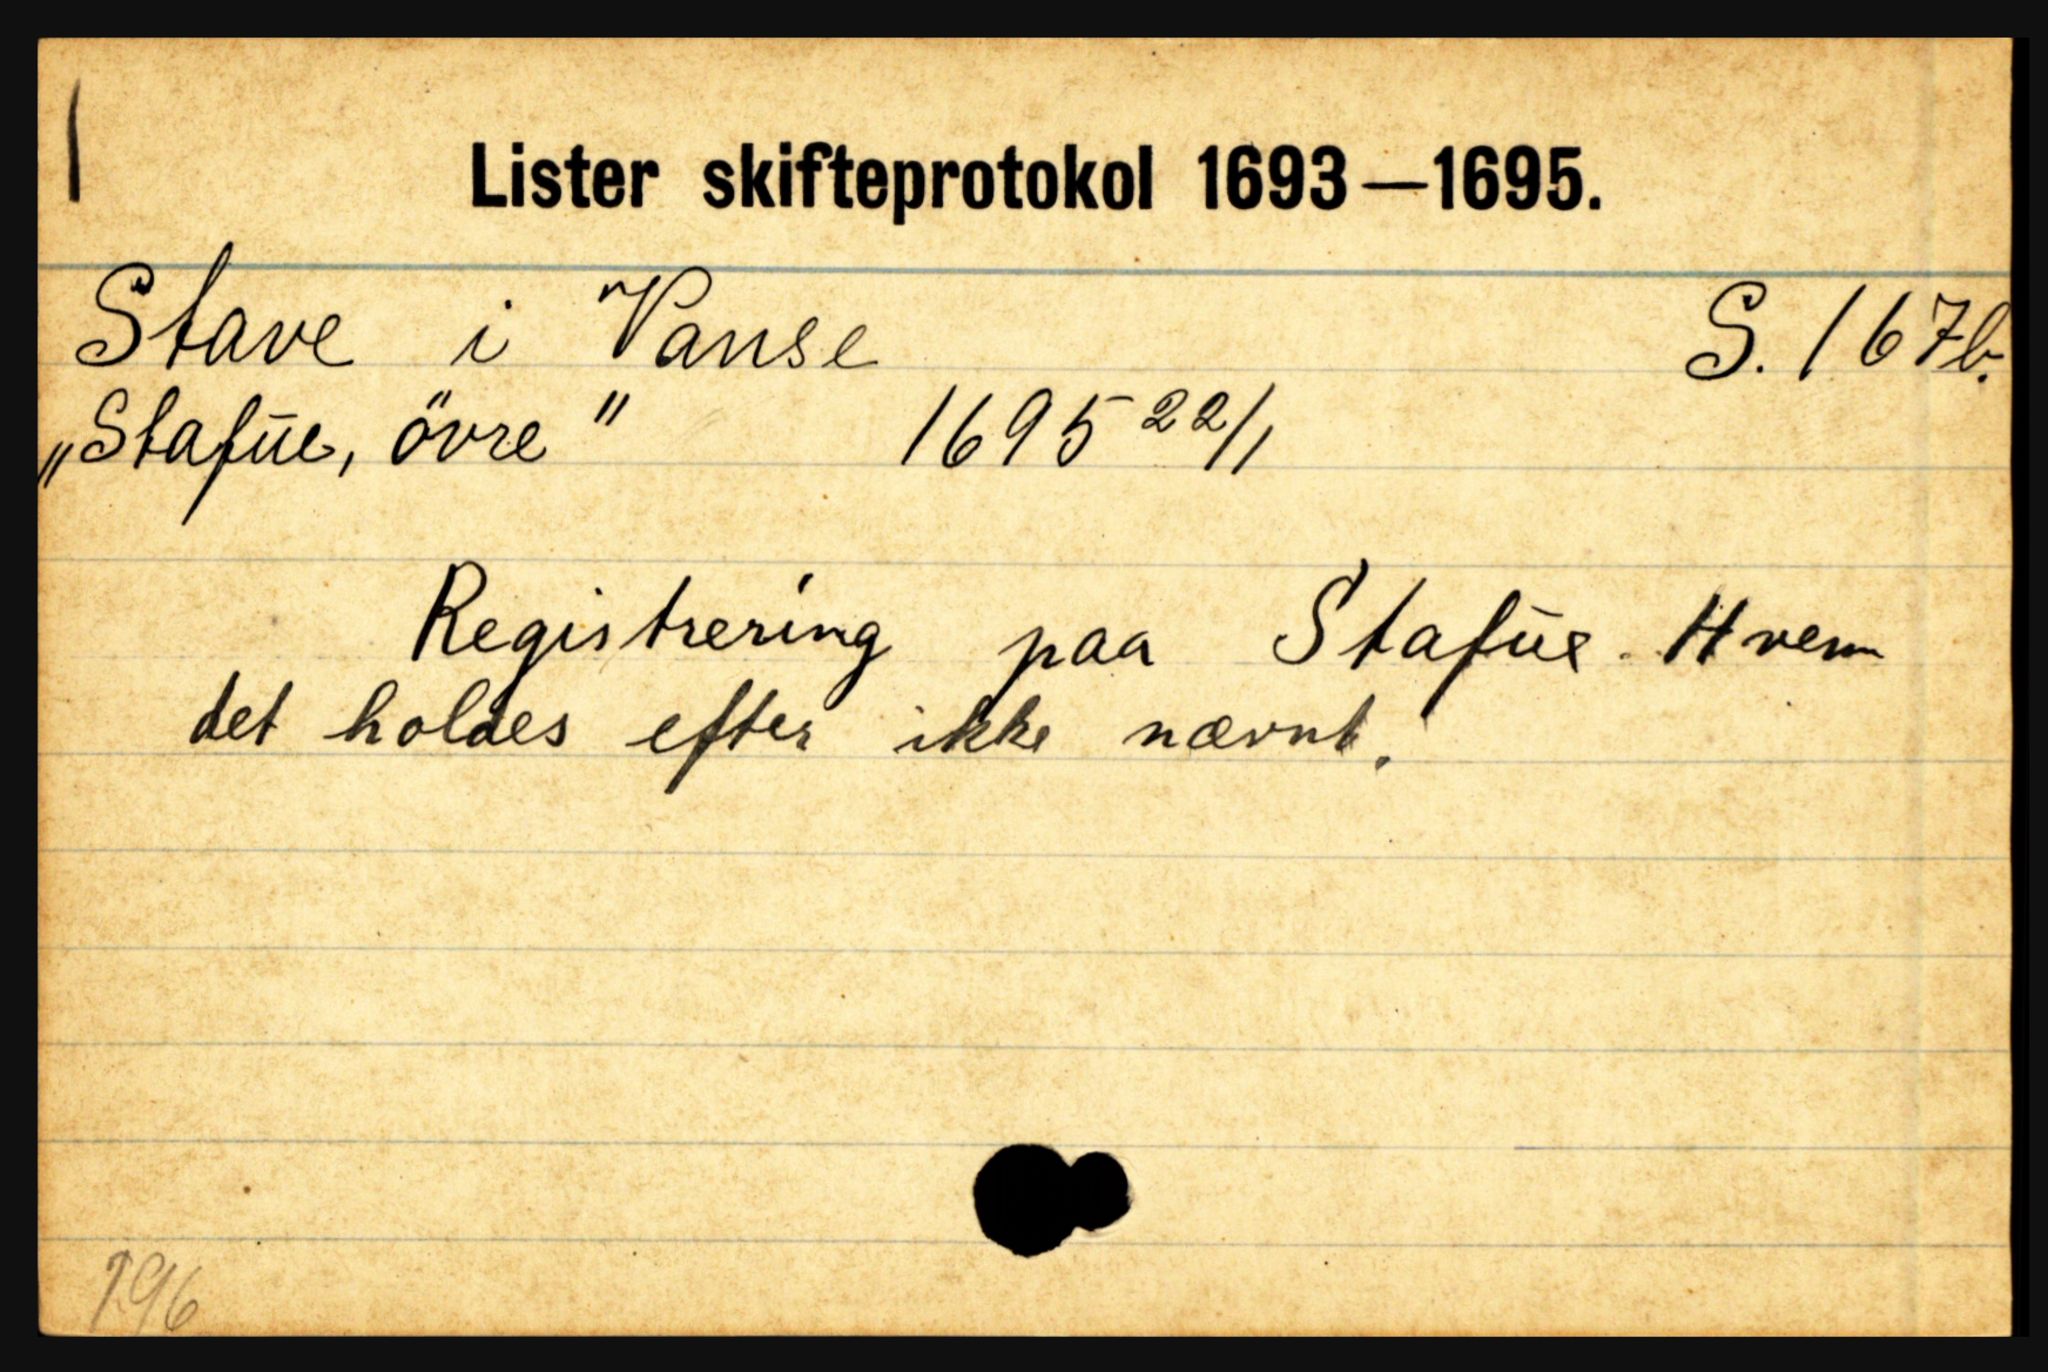 Lister skifteprotokol 1693—1695.
Stave i Vanse S. 167b.
„Stafūe, övre" 1695 22/1
Registrering paa Stafūe. Hvem
det holdes efter ikke nævnt.
196